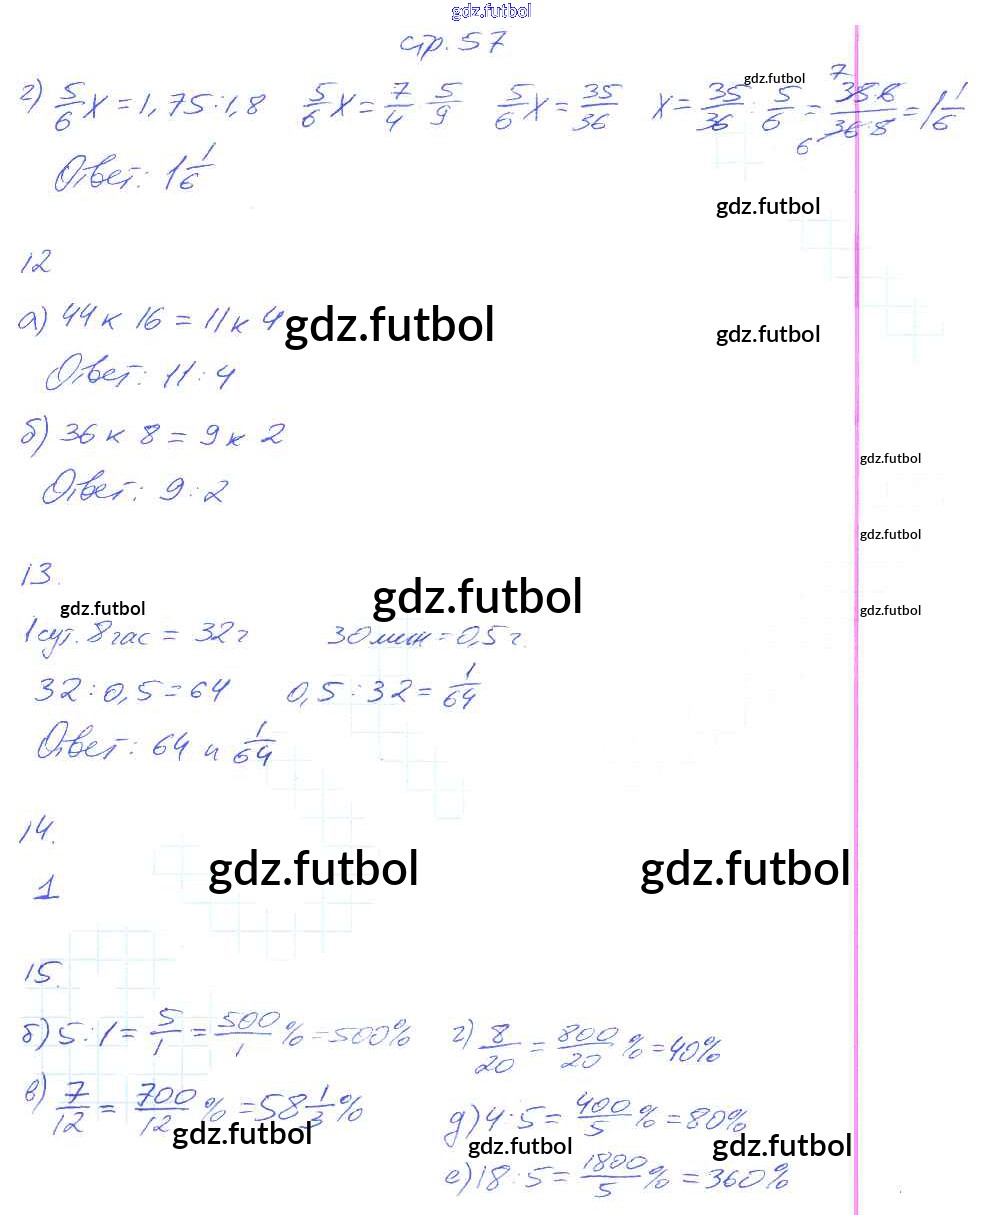 gdz.futbol
стр. 57
г) 5/6 x = 1,75 : 1,8 5/6 x = 7/4 · 5/9 5/6 x = 35/36 x = 35/36 : 5/6 = 35·6/36·5 = 1 1/6
gdz.futbol
7
6
Ответ: 1 1/6
gdz.futbol
12
а) 44 к 16 = 11 к 4
gdz.futbol
gdz.futbol
Ответ: 11 : 4
б) 36 к 8 = 9 к 2
gdz.futbol
Ответ: 9 : 2
gdz.futbol
13.
gdz.futbol
gdz.futbol
gdz.futbol
1 сут. 8 час = 32 ч 30 мин = 0,5 ч.
32 : 0,5 = 64 0,5 : 32 = 1/64
Ответ: 64 и 1/64
14.
gdz.futbol
gdz.futbol
1
15.
б) 5 : 1 = 5/1 = 500/1 % = 500% г) 8/20 = 800/20 % = 40%
в) 7/12 = 700/12 % = 58 1/3 % д) 4 : 5 = 400/5 % = 80%
gdz.futbol
gdz.futbol
gdz.futbol
е) 18 : 5 = 1800/5 % = 360%